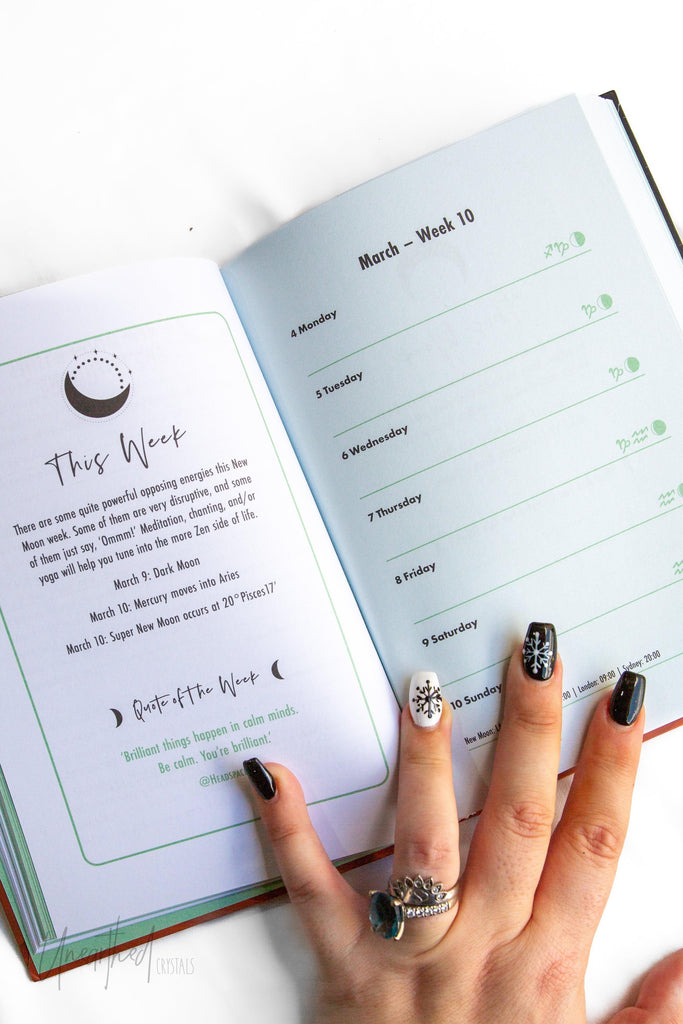 This Week
There are some quite powerful opposing energies this New
Moon week. Some of them are very disruptive, and some
of them just say, 'Ommm!' Meditation, chanting, and/or
yoga will help you tune into the more Zen side of life.
March 9: Dark Moon
March 10: Mercury moves into Aries
March 10: Super New Moon occurs at 20°Pisces17'
Quote of the Week
'Brilliant things happen in calm minds.
Be calm. You're brilliant.'
March – Week 10
4 Monday
5 Tuesday
6 Wednesday
7 Thursday
8 Friday
9 Saturday
10 Sunday
New Moon: :00 | London: 09:00 | Sydney: 20:00
Unearthed
CRYSTALS